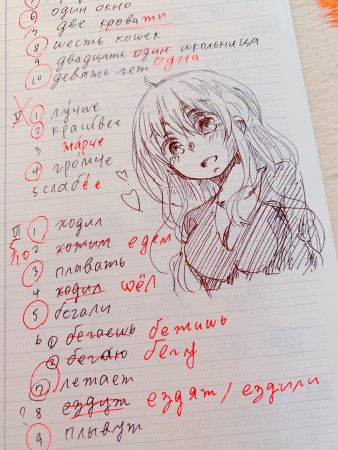 ⑥ один окно
⑦ две кровати
⑧ шесть кошек
9 двадцать один школьница одна
⑩ девять лет
V ① лучше
② красивее
3 жарче
④ громче
5 слабее
VI ① ходил
5/10 2 хотим едем
③ плавать
4 ходил шёл
⑤ бегали
6 ① бегаешь бежишь
② бегаю бегу
⑦ летает
? 8 ездут ездят / ездили
⑨ плывут